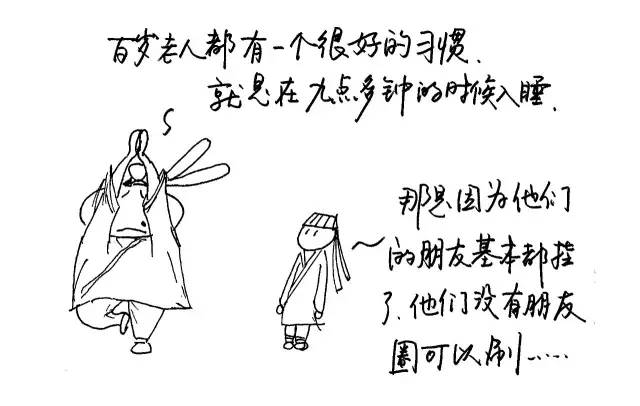 百岁老人都有一个很好的习惯.
就是在九点多钟的时候入睡.
那是因为他们
的朋友基本都挂
了.他们没有朋友
圈可以刷……